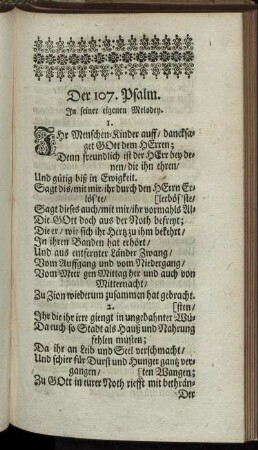 Der 107. Psalm.
In seiner eigenen Melodey.
1.
IHr Menschen-Kinder auff/ dancksa-
get GOtt dem HErren;
Denn freundlich ist der HErr bey de-
nen/ die ihn ehren/
Und gütig biß in Ewigkeit.
Sagt dis/ mit mir/ ihr durch den HErn Er-
lös'te/ [lerbös'ste/
Sagt dieses auch/ mit mir/ ihr vormahls Al-
Die GOtt doch aus der Noth befreyt;
Die er/ wie sich ihr Hertz zu ihm bekehrt/
In ihren Banden hat erhört/
Und aus entfernter Länder Zwang/
Vom Auffgang und vom Niedergang/
Vom Meer gen Mittag her und auch von
Mitternacht/
Zu Zion wiederum zusammen hat gebracht.
2. [sten/
Ihr die ihr irre giengt in ungebahnter Wü-
Da euch so Stadt als Hauß und Nahrung
fehlen müsten;
Da ihr an Leib und Seel verschmacht/
Und schier für Durst und Hunger gantz ver-
gangen/ [ten Wangen;
Zu GOtt in eurer Noth riefft mit bethrän-
Der